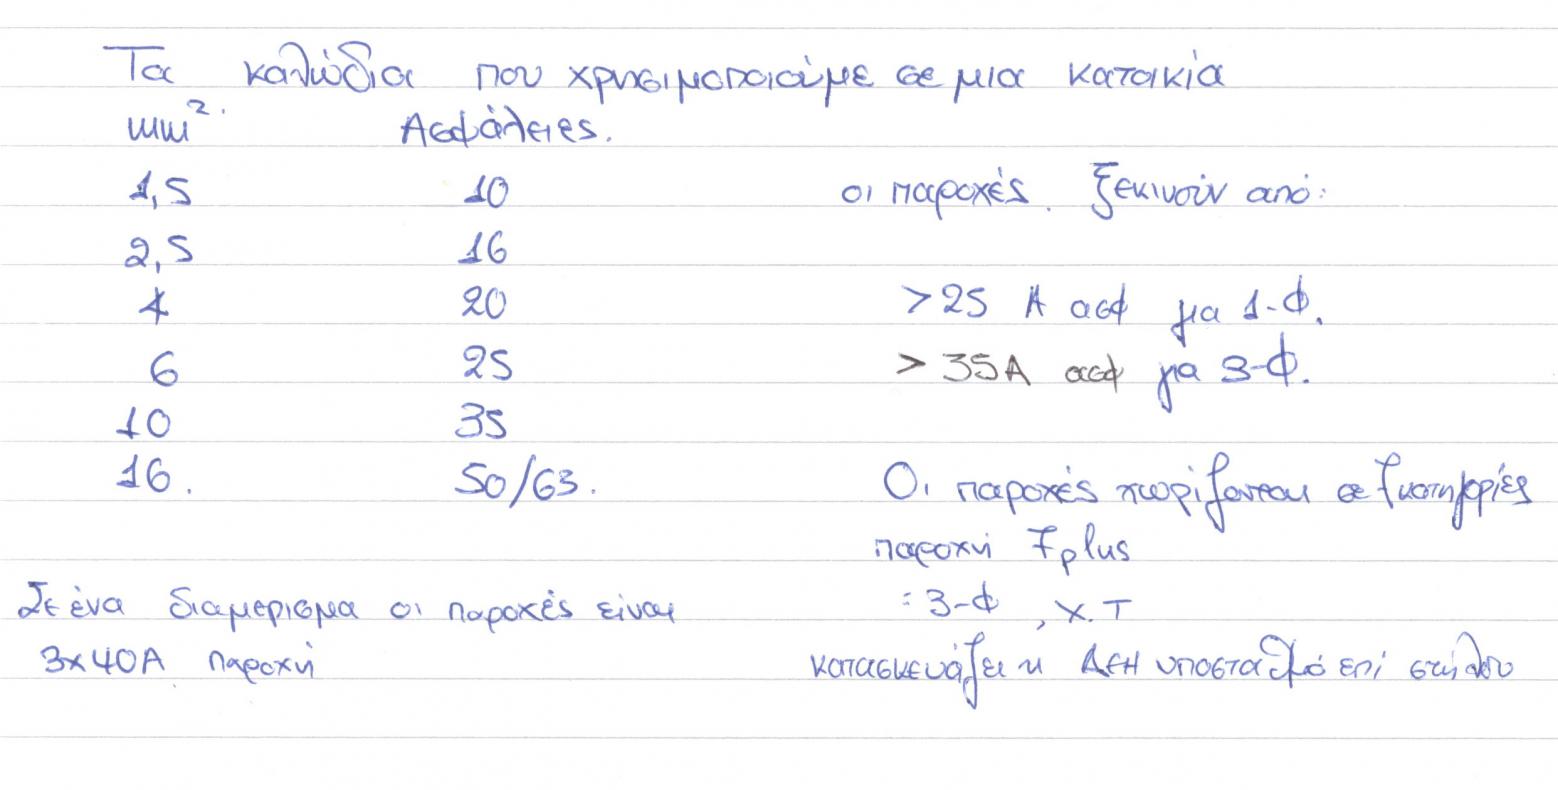 Τα καλώδια που χρησιμοποιούμε σε μια κατοικία
mm². Ασφάλειες.
1,5 10 οι παροχές. ξεκινούν από:
2,5 16
4 20 >25 A ασφ για 1-Φ.
6 25 > 35A ασφ για 3-Φ.
10 35
16. 50/63. Οι παροχές χωρίζονται σε 7 κατηγορίες
παροχή 7plus
Σε ένα διαμέρισμα οι παροχές είναι : 3-Φ, Χ.Τ
3x40A παροχή κατασκευάζει η ΔΕΗ υποσταθμό επί στήλου